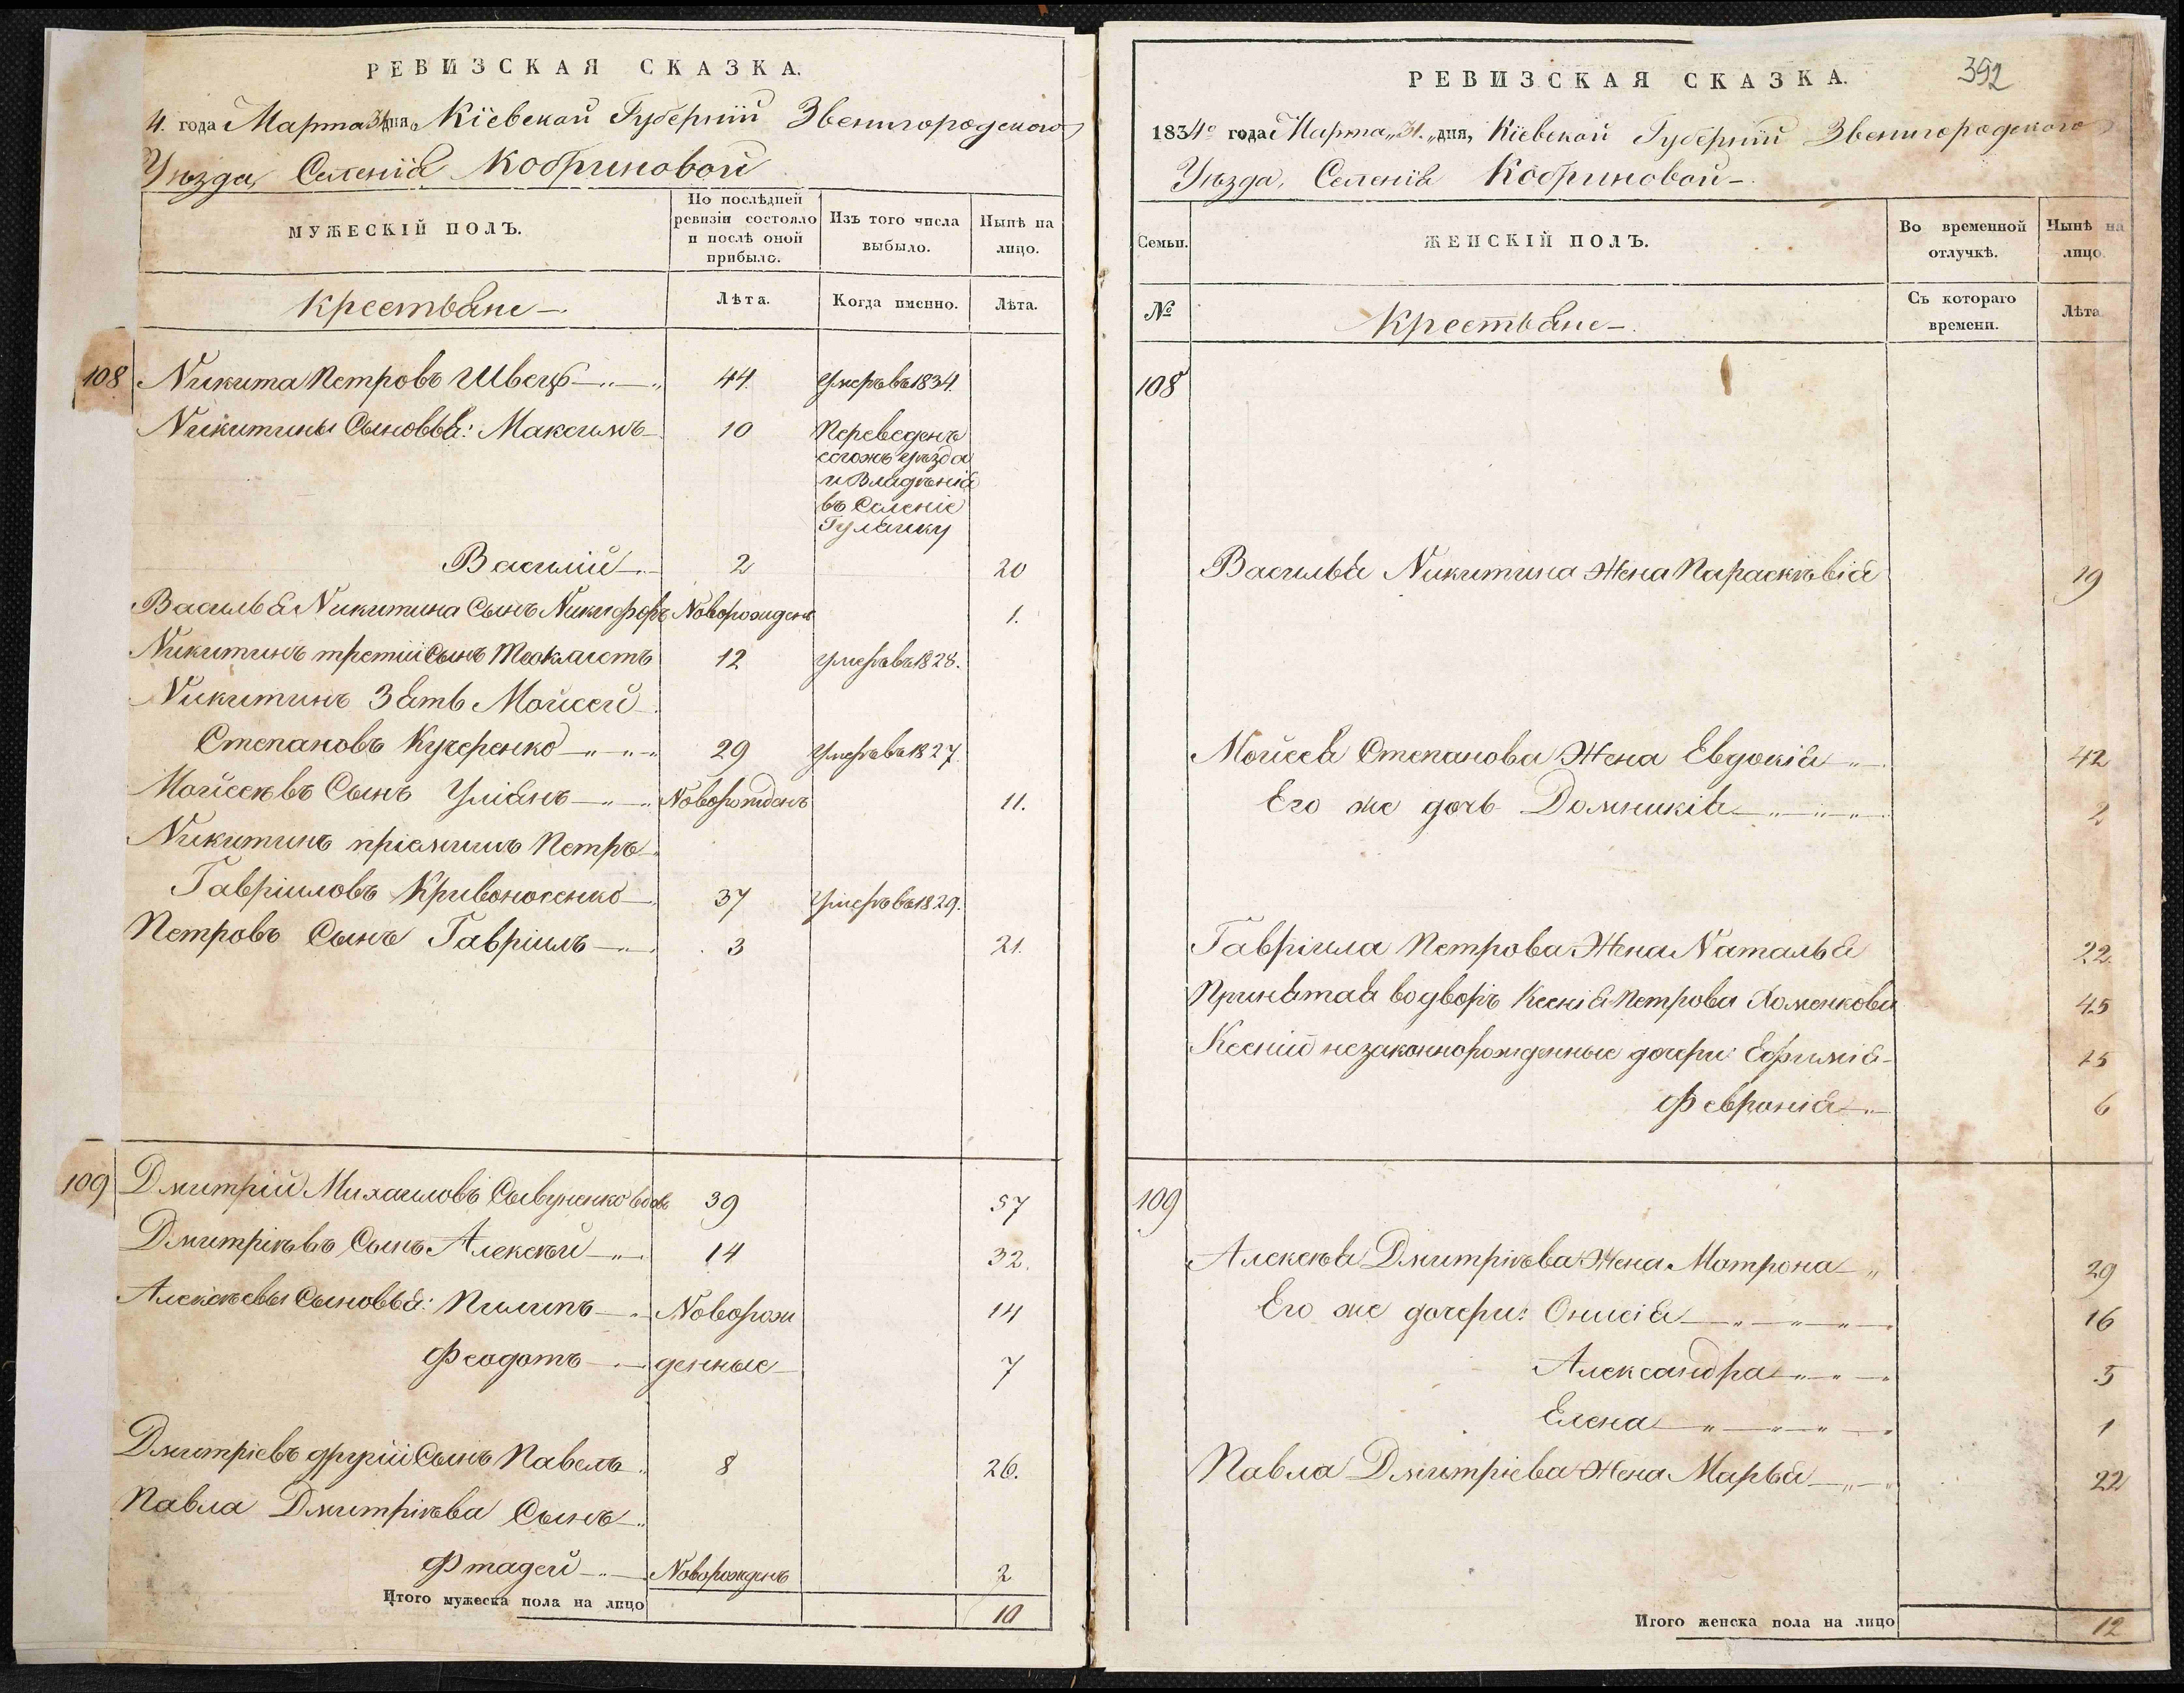 РЕВИЗСКАЯ СКАЗКА.
4. года Марта 31 дня, Кіевской Губерніи Звенигородскаго
Уѣзда, Селенія Кобриновой
МУЖЕСКІЙ ПОЛЪ.
По послѣдней ревизіи состояло и послѣ оной прибыло.
Изъ того числа выбыло.
Нынѣ на лицо.
Крестьяне
Лѣта.
Когда именно.
Лѣта.
108 Никита Петровъ Швецъ 44. Умеръ въ 1834.
Никитины Сыновья: Максимъ 10 Переведенъ
тогожъ уѣзда
и Владѣнія
въ Селеніе
Гулайку
Василій 2 20
Василья Никитина Сынъ Никифоръ Новорожденъ 1.
Никитинъ третій Сынъ Теоклистъ 12 умеръ въ 1828.
Никитинъ Зять Мойсей
Степановъ Кучеренко 29 Умеръ въ 1827.
Мойсеѣвъ Сынъ Уліянъ Новорожденъ 11.
Никитинъ пріемышъ Петръ
Гавріиловъ Кривоносенко 37 Умеръ въ 1829.
Петровъ Сынъ Гавріилъ 3 21.
109 Дмитрій Михаиловъ вдовъ 39 57
Дмитріѣвъ Сынъ Алексѣй 14 32.
Алексѣевы Сыновья: Пилипъ Новорож 14
Феодотъ денные 7
Дмитріевъ другій Сынъ Павелъ 8 26.
Павла Дмитріѣва Сынъ
Фтадей Новорожденъ 2
Итого мужеска пола на лицо 10
РЕВИЗСКАЯ СКАЗКА.
392
1834го года Марта „31.„ дня, Кіевской Губерніи Звенигородскаго
Уѣзда, Селенія Кобриновой
Семьи.
ЖЕНСКІЙ ПОЛЪ.
Во временной отлучкѣ.
Нынѣ на лицо.
№
Крестьяне
Съ котораго времени.
Лѣта
108
Василья Никитина Жена Параскѣвія 19
Мойсея Степанова Жена Евдокія 42
Его же дочь Домникія 2
Гавріила Петрова Жена Наталья 22.
Принятая во дворъ Ксенія Петрова Хоменкова 45
Ксеніи незаконнорожденные дочери: Ефимія 15
Февронія 6
109
Алексѣя Дмитріѣва Жена Матрона 29
Его же дочери: Онисія 16
Александра 5
Елена 1
Павла Дмитріева Жена Марья 22
Итого женска пола на лицо 12